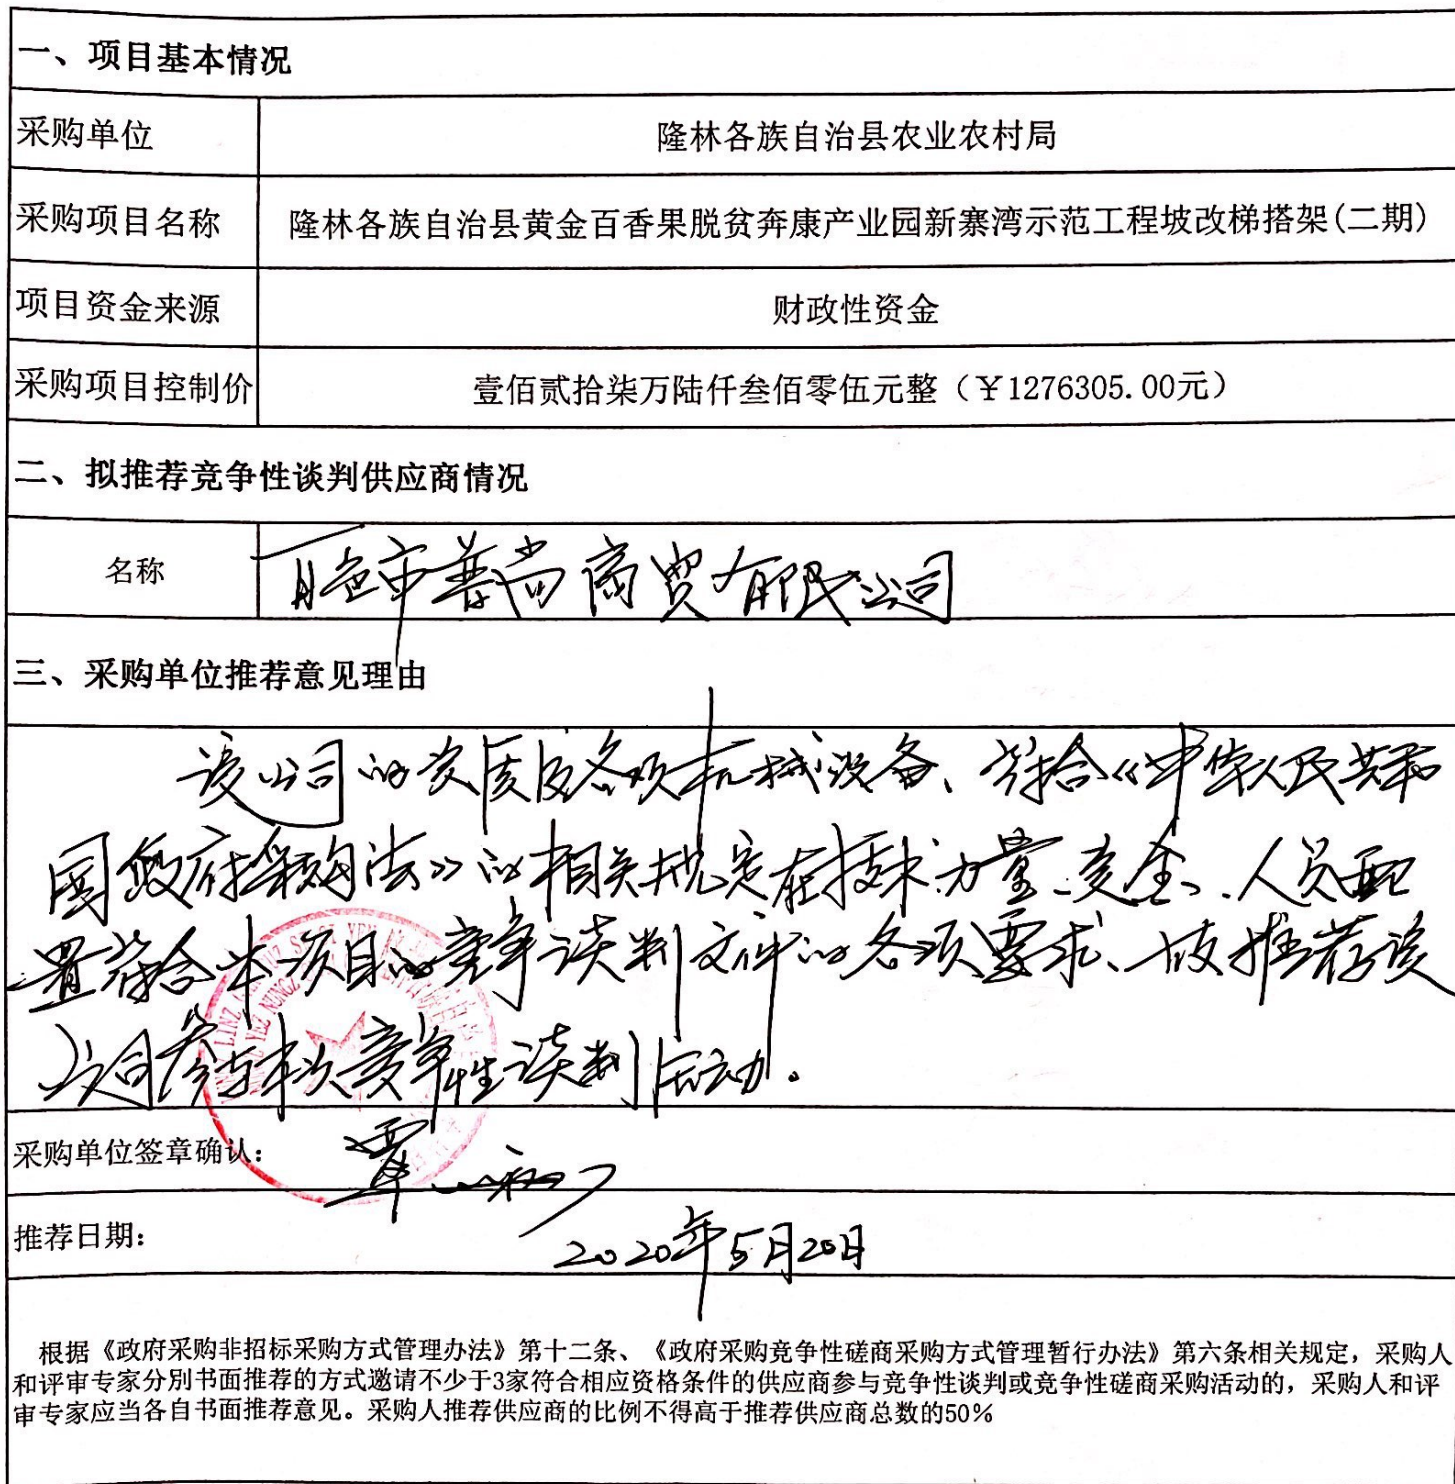 一、项目基本情况
采购单位
隆林各族自治县农业农村局
采购项目名称
隆林各族自治县黄金百香果脱贫奔康产业园新寨湾示范工程坡改梯搭架(二期)
项目资金来源
财政性资金
采购项目控制价
壹佰贰拾柒万陆仟叁佰零伍元整（￥1276305.00元）
二、拟推荐竞争性谈判供应商情况
名称
百色市普尚商贸有限公司
三、采购单位推荐意见理由
该公司的资质及各项机械设备、符合《中华人民共和
国政府采购法》的相关规定在技术力量、资金、人员配
置符合本项目的竞争谈判文件的各项要求、故推荐该
公司参与本次竞争性谈判活动。
采购单位签章确认：
推荐日期：
2020年5月20日
根据《政府采购非招标采购方式管理办法》第十二条、《政府采购竞争性磋商采购方式管理暂行办法》第六条相关规定，采购人
和评审专家分别书面推荐的方式邀请不少于3家符合相应资格条件的供应商参与竞争性谈判或竞争性磋商采购活动的，采购人和评
审专家应当各自书面推荐意见。采购人推荐供应商的比例不得高于推荐供应商总数的50%